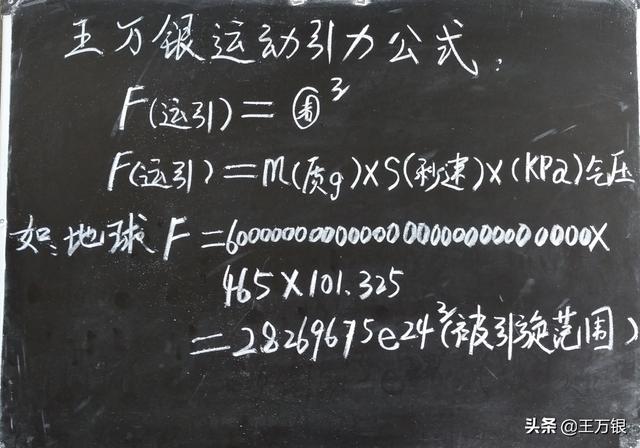 王万银运动引力公式:
F(运引)= ³
F(运引)=M(质g)×S(秒速)×(KPa)气压
如:地球F=6000000000000000000000000000×
465×101.325
=28269675e24³(被引旋范围)
头条@王万银